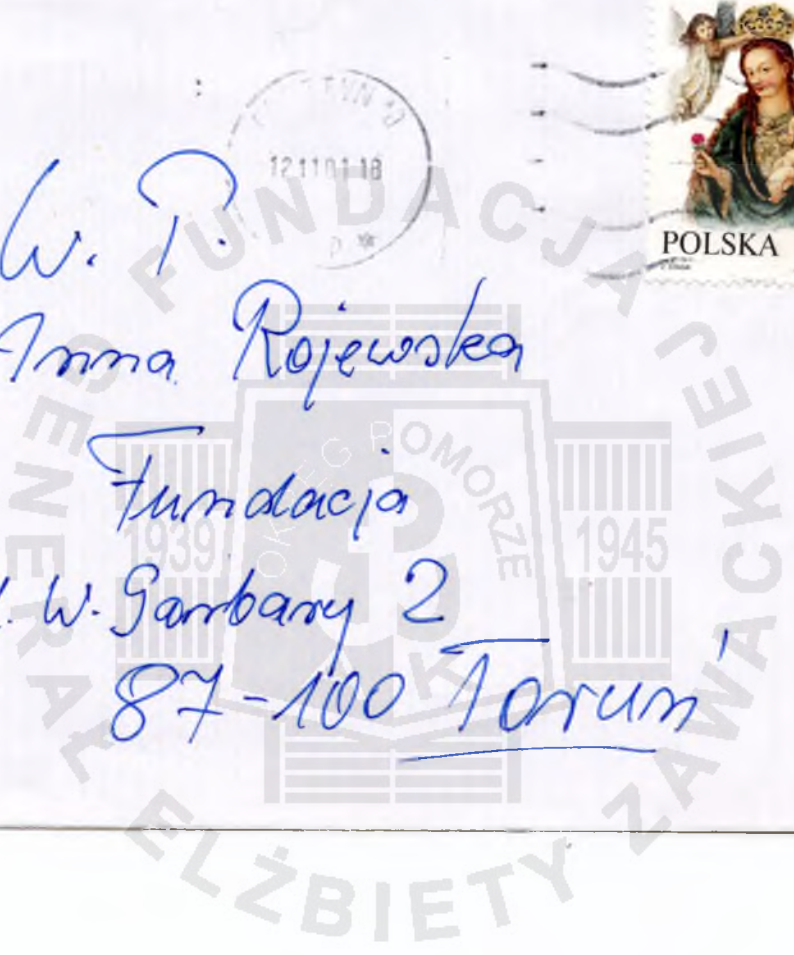 12 11 01 18
POLSKA
W. P.
Anna Rojewska
Fundacja
W. Garbary 2
87-100 Toruń
FUNDACJA GENERAŁ ELŻBIETY ZAWACKIEJ
OKRĘG POMORZE
1939
1945
AK